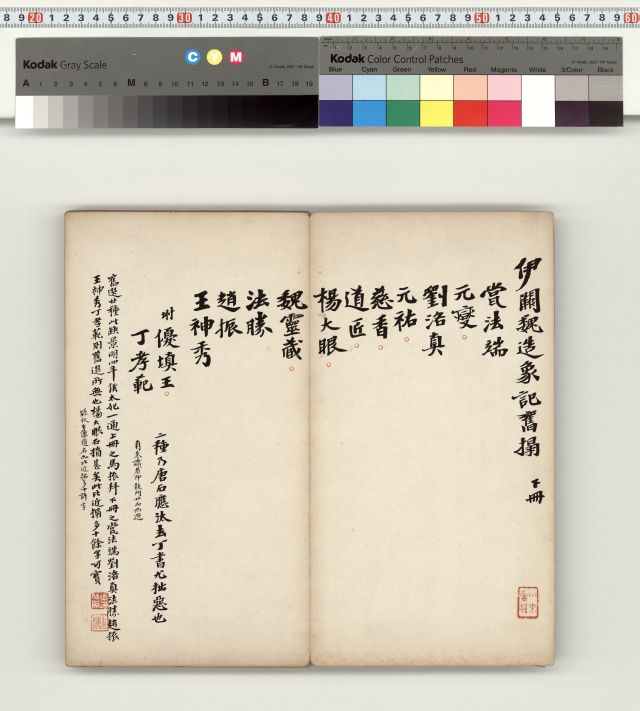 9 20 1 2 3 4 5 6 7 8 9 30 1 2 3 4 5 6 7 8 9 40 1 2 3 4 5 6 7 8 9 50 1 2 3 4 5 6 7 8 9 60
Kodak Gray Scale
C Y M
© Kodak, 2007 TM: Kodak
A 1 2 3 4 5 6 M 8 9 10 11 12 13 14 15 B 17 18 19
Kodak Color Control Patches
© Kodak, 2007 TM: Kodak
Blue Cyan Green Yellow Red Magenta White 3/Color Black
伊闕魏造象記舊搨 下冊
甞法端
元燮
劉洛真
元祐
慈香
道匠
楊大眼
魏靈藏
法勝
趙振
王神秀
附優填王
丁孝範
二種乃唐石應汰去丁書尤拙惡也
舊選廿種此缺景明四年侯太妃一通上冊之馬振拜下冊之甞法端劉洛真法勝趙振
王神秀丁孝範則舊選所無也楊大眼石損甚矣此比近搨多十餘字可寶